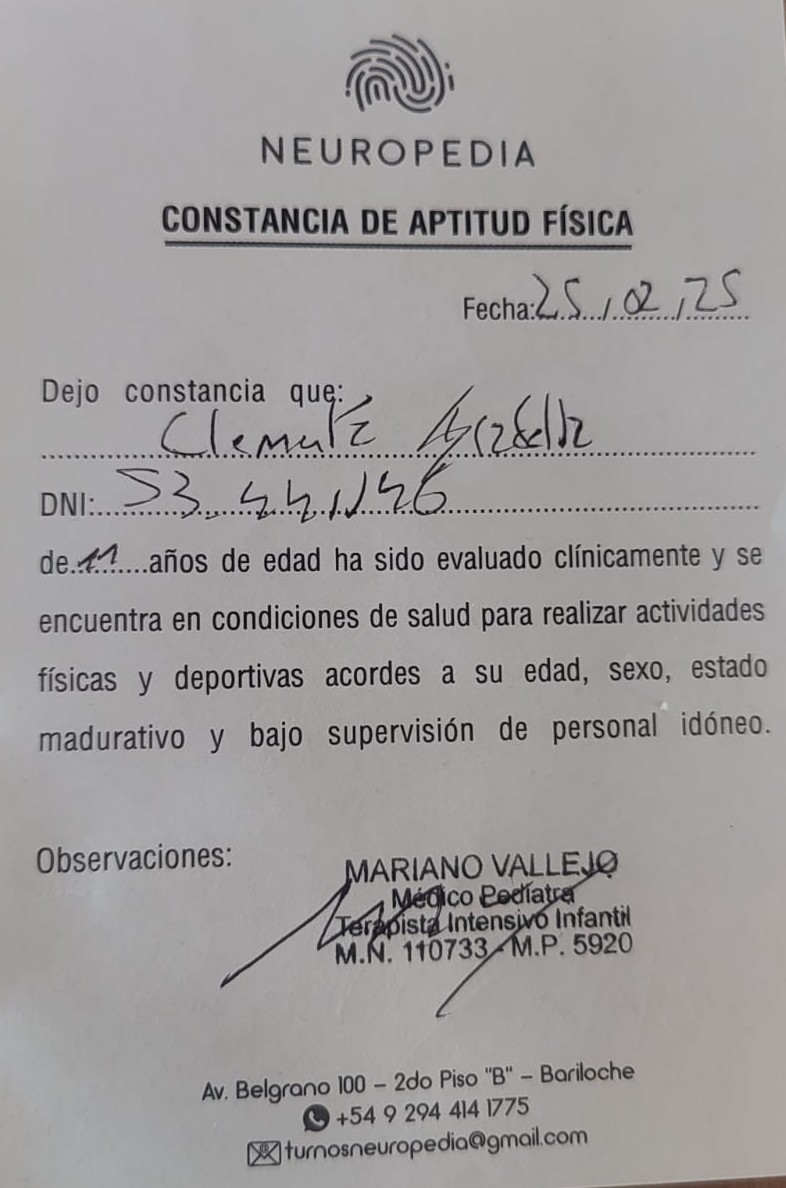 NEUROPEDIA
CONSTANCIA DE APTITUD FÍSICA
Fecha: 25/02/25
Dejo constancia que:
DNI: 53.
de 11 años de edad ha sido evaluado clínicamente y se
encuentra en condiciones de salud para realizar actividades
físicas y deportivas acordes a su edad, sexo, estado
madurativo y bajo supervisión de personal idóneo.
Observaciones:
MARIANO VALLEJO
Médico Pediatra
Terapista Intensivo Infantil
M.N. 110733 - M.P. 5920
Av. Belgrano 100 – 2do Piso "B" – Bariloche
+54 9 294 414 1775
turnosneuropedia@gmail.com